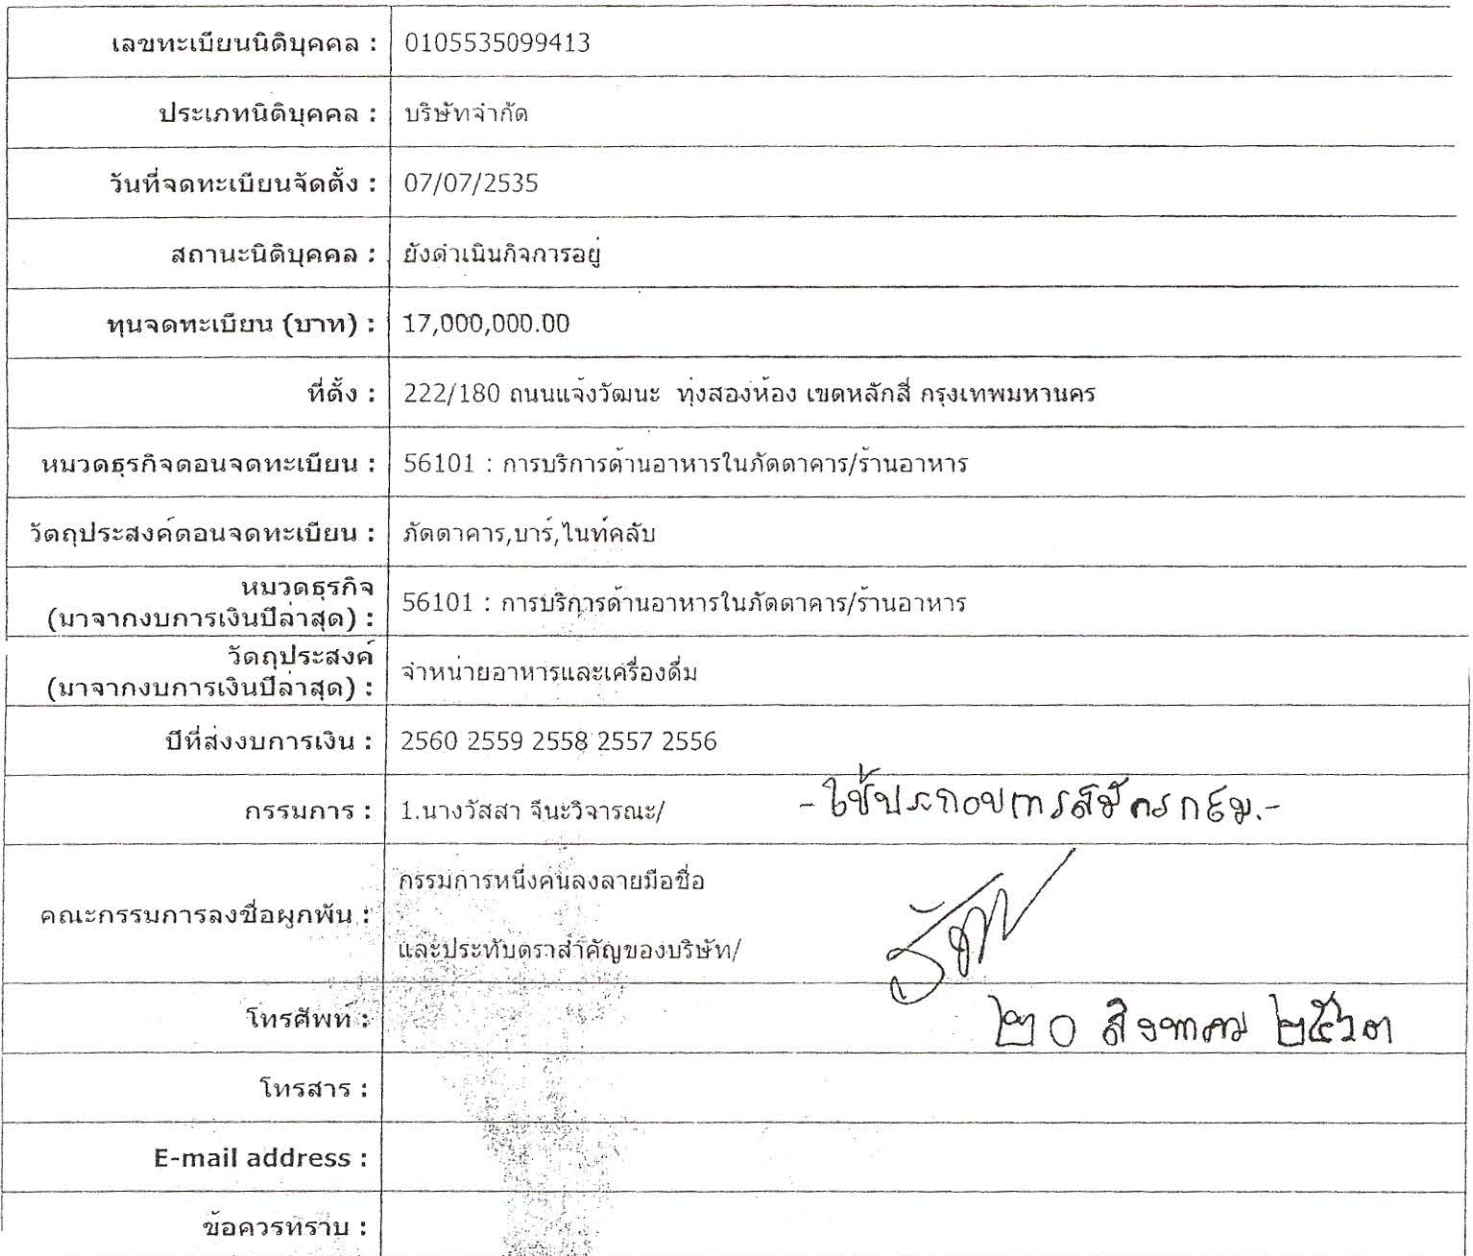 เลขทะเบียนนิติบุคคล : 0105535099413
ประเภทนิติบุคคล : บริษัทจำกัด
วันที่จดทะเบียนจัดตั้ง : 07/07/2535
สถานะนิติบุคคล : ยังดำเนินกิจการอยู่
ทุนจดทะเบียน (บาท) : 17,000,000.00
ที่ตั้ง : 222/180 ถนนแจ้งวัฒนะ ทุ่งสองห้อง เขตหลักสี่ กรุงเทพมหานคร
หมวดธุรกิจตอนจดทะเบียน : 56101 : การบริการด้านอาหารในภัตตาคาร/ร้านอาหาร
วัตถุประสงค์ตอนจดทะเบียน : ภัตตาคาร,บาร์,ไนท์คลับ
หมวดธุรกิจ
(มาจากงบการเงินปีล่าสุด) : 56101 : การบริการด้านอาหารในภัตตาคาร/ร้านอาหาร
วัตถุประสงค์
(มาจากงบการเงินปีล่าสุด) : จำหน่ายอาหารและเครื่องดื่ม
ปีที่ส่งงบการเงิน : 2560 2559 2558 2557 2556
กรรมการ : 1.นางวัสสา จีนะวิจารณะ/ - ใช้ประกอบการสมัคร กสม.-
คณะกรรมการลงชื่อผูกพัน : กรรมการหนึ่งคนลงลายมือชื่อ
และประทับตราสำคัญของบริษัท/
โทรศัพท์ : ๒๐ สิงหาคม ๒๕๖๓
โทรสาร :
E-mail address :
ข้อควรทราบ :